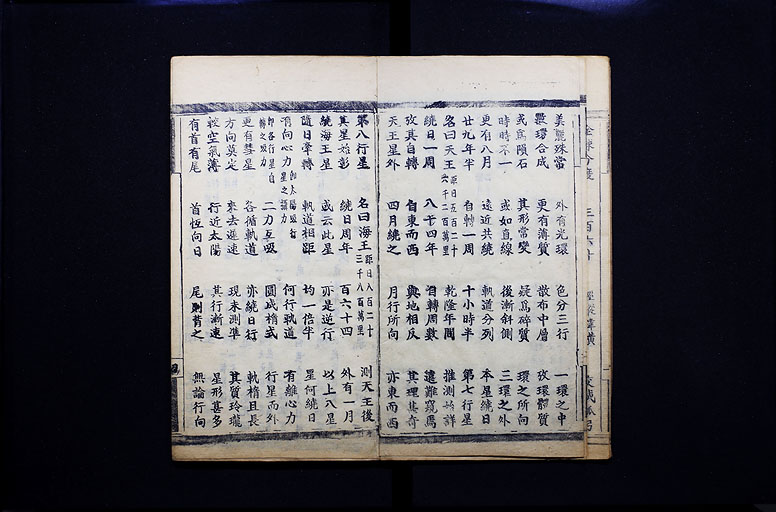 三百六十 經從緯橫
美麗殊常 外有光環 色分三行 一環之中
數環合成 更有薄質 散布中層 攷環體質
或爲隕石 其形常變 疑爲碎質 環之所向
時時不一 或如直線 後漸斜側 三環之外
更有八月 遠近共繞 軌道分列 本星繞日
廿九年半 自轉一周 十小時半 第七行星
名曰天王 距日五百二十六千二百萬里 乾隆年間 推測始詳
繞日一周 八十四年 轉周數 遽難窺焉
攷其自轉 自東而西 與地相反 其理甚奇
天王星外 四月繞之 月行所向 亦東而西
第八行星 名曰海王 距日八百二十三千八百萬里 測天王後
其星始彰 繞日周年 百六十四 外有一月
繞海王星 或云此星 亦是逆行 以上八星
隨日牽轉 軌道相距 均一倍半 星何繞日
有向心力 卽太陽吸各星之力 何行軌道 有離心力
卽各行星自轉之力 二力互吸 圜成橢式 行星而外
更有彗星 各循軌道 亦繞日行 軌橢且長
方向莫定 來去遲速 現未測準 其質玲瓏
較空氣薄 行近太陽 其行漸速 星形甚多
有首有尾 首恆向日 尾則背之 無論行向